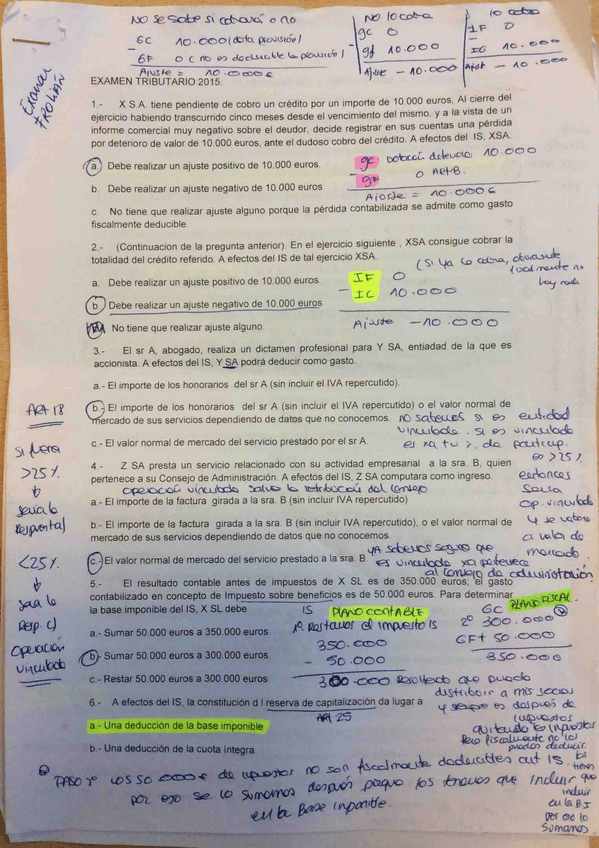 NO SE SABE SI COBRARÁ O NO
GC 10.000 (dota provisión)
- GF 0 (no es deducible la provisión)
Ajuste = 10.000€
NO lo cobra
gc 0
- gf 10.000
Ajuste - 10.000
lo cobra
IF 0
- IC 10.000
Ajust - 10.000
Examen
FROILÁN
EXAMEN TRIBUTARIO 2015.
1.- X S.A. tiene pendiente de cobro un crédito por un importe de 10.000 euros. Al cierre del
ejercicio habiendo transcurrido cinco meses desde el vencimiento del mismo, y a la vista de un
informe comercial muy negativo sobre el deudor, decide registrar en sus cuentas una pérdida
por deterioro de valor de 10.000 euros, ante el dudoso cobro del crédito. A efectos del IS, XSA.
a. Debe realizar un ajuste positivo de 10.000 euros.
gc Dotación deterioro 10.000
b. Debe realizar un ajuste negativo de 10.000 euros
- 0 ART
Ajoste = 10.000€
c. No tiene que realizar ajuste alguno porque la pérdida contabilizada se admite como gasto
fiscalmente deducible.
2.- (Continuacion de la pregunta anterior). En el ejercicio siguiente , XSA consigue cobrar la
totalidad del crédito referido. A efectos del IS de tal ejercicio XSA.
(Si ya lo cobra,
fiscalmente no
hay nada
a. Debe realizar un ajuste positivo de 10.000 euros.
IF 0
b. Debe realizar un ajuste negativo de 10.000 euros
- IC 10.000
No tiene que realizar ajuste alguno.
Ajuste -10.000
3.- El sr A, abogado, realiza un dictamen profesional para Y SA, entiadad de la que es
accionista. A efectos del IS, Y SA podrá deducir como gasto.
a.- El importe de los honorarios del sr A (sin incluir el IVA repercutido).
b.- El importe de los honorarios del sr A (sin incluir el IVA repercutido) o el valor normal de
mercado de sus servicios dependiendo de datos que no conocemos.
no sabemos si es entidad
vinculado si es vinculado
es xa tu % de particip.
es >25%
c.- El valor normal de mercado del servicio prestado por el sr A.
ART 18
Si fuera
>25%
sería la
Respuesta)
<25%
Sería la
Resp. c)
Operación
vinculada
4.- Z SA presta un servicio relacionado con su actividad empresarial a la sra. B, quien
pertenece a su Consejo de Administración. A efectos del IS, Z SA computara como ingreso.
operación vinculada salvo la retribución del Consejo
entonces
Sería
op. vinculada
y se valora
a valor de
mercado
a.- El importe de la factura girada a la sra. B (sin incluir el IVA repercutido)
b.- El importe de la factura girada a la sra. B (sin incluir el IVA repercutido), o el valor normal de
mercado de sus servicios dependiendo de datos que no conocemos.
c.- El valor normal de mercado del servicio prestado a la sra. B.
ya sabemos seguro que
es vinculada xa pertenece
al Consejo de administración
5.- El resultado contable antes de impuestos de X SL es de 350.000 euros, el gasto
contabilizado en concepto de Impuesto sobre beneficios es de 50.000 euros. Para determinar
la base imponible del IS, X SL debe
IS PLANO CONTABLE
1º. Restamos el impuesto IS
350.000
- 50.000
300.000 Resultado que puedo
distribuir a mis socios
y siempre es después de
impuestos
GC PLANO FISCAL
2º 300.000
GF+ 50.000
350.000
a.- Sumar 50.000 euros a 350.000 euros.
b.- Sumar 50.000 euros a 300.000 euros.
c.- Restar 50.000 euros a 350.000 euros.
6.- A efectos del IS, la constitución d l reserva de capitalización da lugar a
ART 25
a.- Una deducción de la base imponible
b.- Una deducción de la cuota íntegra.
quitando los impuestos
Pero fiscalmente no los
puedes deducir.
los tienes
que
incluir
en la BI
por eso lo
Sumamos.
PASO 2º LOS 50.000€ de impuestos no son fiscalmente deducibles art 15.
por eso se lo sumamos después porque los tenemos que incluir
en la Base imponible.